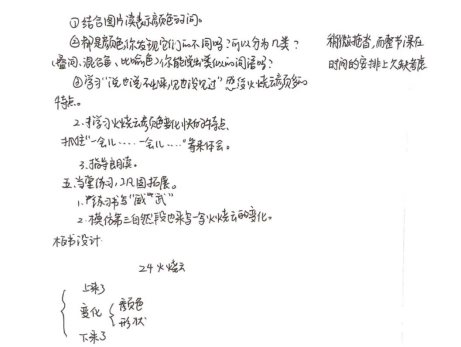 ①结合图片读表示颜色的词。
②都是颜色你发现它们的不同吗？可以分为几类？
（叠词、混合色、比喻色）你能说出类似的词语吗？
③学习“说也说不出来，见也没见过”感受火烧云颜色多的
特点。
2.学习火烧云颜色变化快的特点，
抓住“一会儿……一会儿……”等来体会。
3.指导朗读。
五.当堂练习，巩固拓展。
1.练习书写“威”“武”
2.模仿第三自然段也来写一写火烧云的变化。
板书设计
24火烧云
上来了
变化 颜色
形状
下来了
稍微拖沓，而整节课在
时间的安排上欠缺考虑